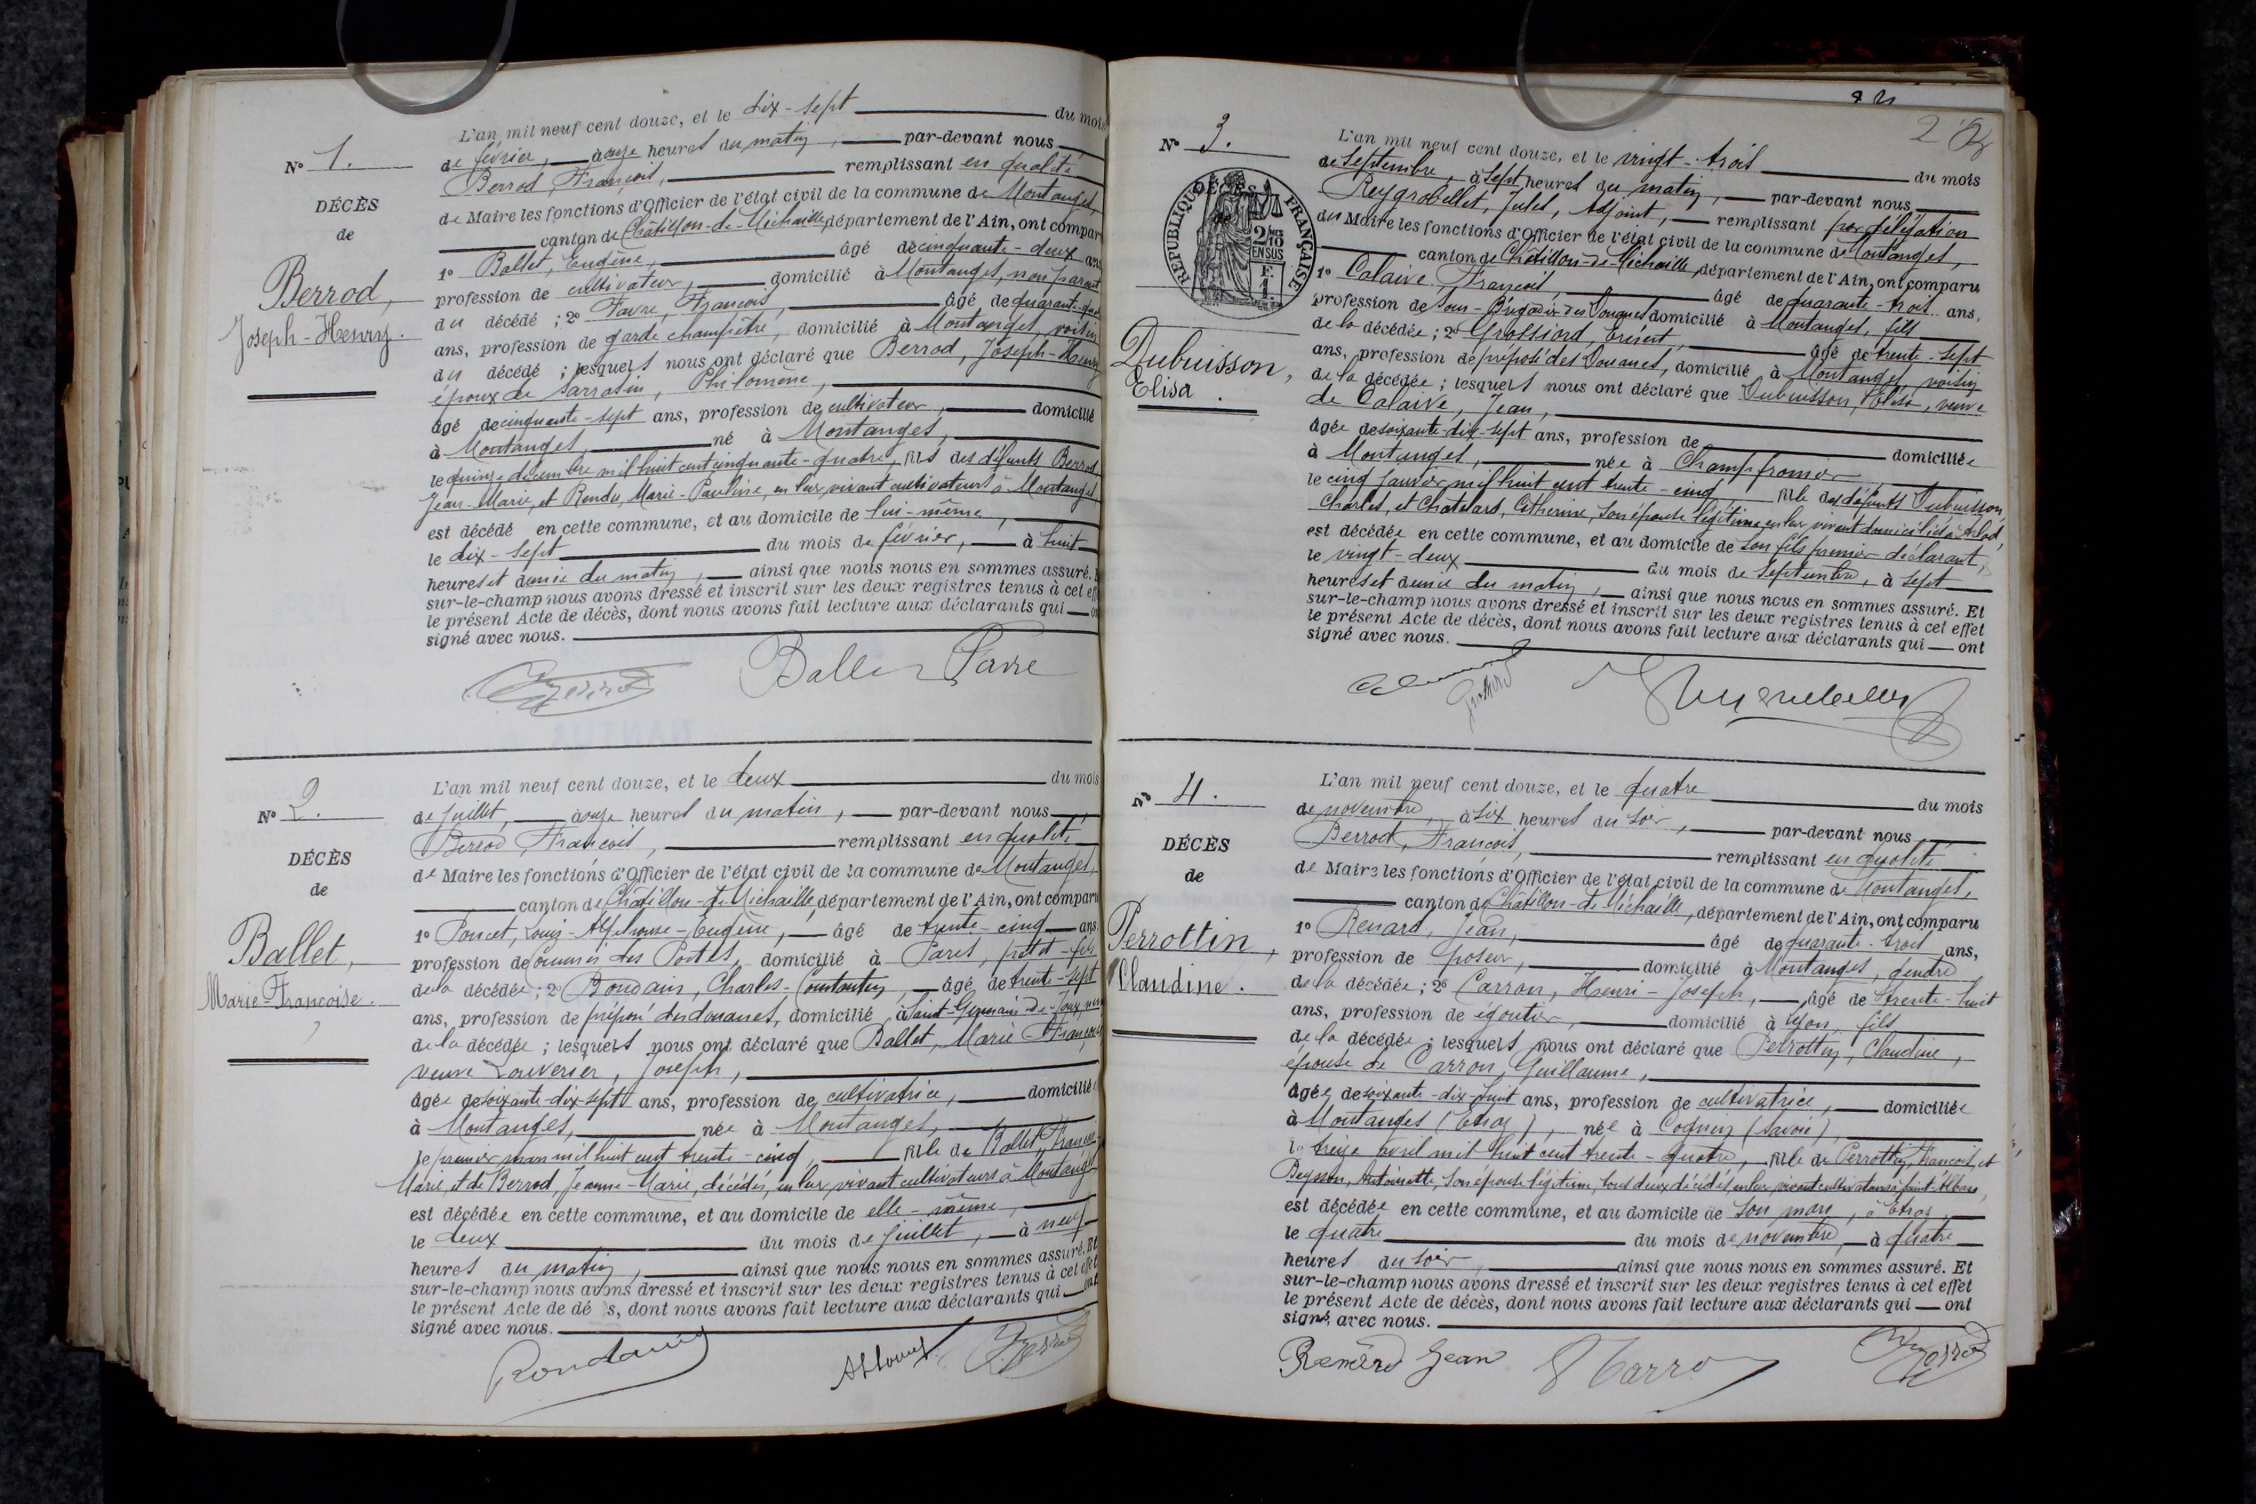 N° 1.
DÉCÈS
de
Berrod,
Joseph-Henry.
L'an mil neuf cent douze, et le dix-sept du mois
de février, à onze heures du matin, par-devant nous
Berrod, François, remplissant en qualité
de Maire les fonctions d'Officier de l'état civil de la commune de Montanges,
canton de Châtillon-de-Michaille, département de l'Ain, ont compar
1° Ballet, Eugène, âgé de cinquante-deux ans
profession de cultivateur, domicilié à Montanges, non parent
du décédé; 2° Favre, François, âgé de quarante-
ans, profession de garde champêtre, domicilié à Montanges, voisin
du décédé; lesquels nous ont déclaré que Berrod, Joseph-Henry
époux de Sarrasin, Philomène,
âgé de cinquante-sept ans, profession de cultivateur, domicilié
à Montanges né à Montanges,
le quinze décembre mil huit cent cinquante-quatre, fils des défunts Berrod,
Jean-Marie, et Rendu, Marie-Pauline, en leur vivant cultivateurs à Montanges
est décédé en cette commune, et au domicile de lui-même,
le dix-sept du mois de février, à huit
heures et demie du matin, ainsi que nous nous en sommes assuré. E
sur-le-champ nous avons dressé et inscrit sur les deux registres tenus à cet eff
le présent Acte de décès, dont nous avons fait lecture aux déclarants qui on
signé avec nous.
Berrod Ballet Favre
N° 2.
DÉCÈS
de
Ballet,
Marie Françoise.
L'an mil neuf cent douze, et le deux du mois
de juillet, à onze heures du matin, par-devant nous
Berrod, François, remplissant en qualité
de Maire les fonctions d'Officier de l'état civil de la commune de Montanges,
canton de Châtillon-de-Michaille, département de l'Ain, ont comparu
1° Poncet, Louis-Alphonse-Eugène, âgé de trente-cinq ans
profession de ouvrier des Postes, domicilié à Paris, petit-fils
de la décédée; 2° Boudain, Charles-Constantin, âgé de trente-sept
ans, profession de préposé des douanes, domicilié à Saint-Germain-de-Joux,
de la décédée; lesquels nous ont déclaré que Ballet, Marie Françoise
veuve Louverier, Joseph,
âgée de soixante-dix-sept ans, profession de cultivatrice, domiciliée
à Montanges, née à Montanges,
le premier mars mil huit cent trente-cinq, fille de Ballet François
Marie, et de Berrod, Jeanne-Marie, décédés, en leur vivant cultivateurs à Montanges
est décédée en cette commune, et au domicile de elle-même,
le deux du mois de juillet, à neuf
heures du matin, ainsi que nous nous en sommes assuré. Et
sur-le-champ nous avons dressé et inscrit sur les deux registres tenus à cet effet
le présent Acte de dé s, dont nous avons fait lecture aux déclarants qui ont
signé avec nous.
Berrod
2
N° 3.
RÉPUBLIQUE FRANÇAISE
DÉCÈS
de
2/10
EN SUS
Dubuisson,
Elisa.
L'an mil neuf cent douze, et le vingt-trois du mois
de Septembre, à Sept heures du matin, par-devant nous
Reygrobellet, Jules, Adjoint, remplissant par délégation
du Maire les fonctions d'Officier de l'état civil de la commune de Montanges,
canton de Châtillon-de-Michaille, département de l'Ain, ont comparu
1° Calaive François, âgé de quarante-trois ans,
profession de Sous-Brigadier des Douanes domicilié à Montanges, fils
de la décédée; 2° Grossiord, âgé de trente-sept
ans, profession de préposé des Douanes, domicilié à Montanges, voisin
de la décédée; lesquels nous ont déclaré que Dubuisson, Elisa, veuve
de Calaive, Jean,
âgée de soixante-dix-sept ans, profession de domiciliée
à Montanges, née à Champfromier
le cinq janvier mil huit cent trente-cinq, fille des défunts Dubuisson,
Charles, et Chatelard, Catherine, son épouse légitime, en leur vivant domiciliés à Arlod,
est décédée en cette commune, et au domicile de son fils premier déclarant,
le vingt-deux du mois de Septembre, à sept
heures et demie du matin, ainsi que nous nous en sommes assuré. Et
sur-le-champ nous avons dressé et inscrit sur les deux registres tenus à cet effet
le présent Acte de décès, dont nous avons fait lecture aux déclarants qui ont
signé avec nous.
N° 4.
DÉCÈS
de
Perrottin,
Claudine.
L'an mil neuf cent douze, et le quatre du mois
de novembre, à six heures du soir, par-devant nous
Berrod, François, remplissant en qualité
de Maire les fonctions d'Officier de l'état civil de la commune de Montanges,
canton de Châtillon-de-Michaille, département de l'Ain, ont comparu
1° Renard, Jean, âgé de quarante-trois ans,
profession de poseur, domicilié à Montanges, gendre
de la décédée; 2° Carron, Henri-Joseph, âgé de trente-huit
ans, profession de égoutier, domicilié à Lyon, fils
de la décédée; lesquels nous ont déclaré que Perrottin, Claudine,
épouse de Carron, Guillaume,
âgée de soixante-dix-huit ans, profession de cultivatrice, domiciliée
à Montanges (Etraz), née à Cognin (Savoie),
le treize avril mil huit cent trente-quatre, fille de Perrottin, François, et
Antoinette, son épouse légitime, tous deux décédés, en leur vivant cultivateurs à
est décédée en cette commune, et au domicile de son mari, à Etraz,
le quatre du mois de novembre, à quatre
heures du soir, ainsi que nous nous en sommes assuré. Et
sur-le-champ nous avons dressé et inscrit sur les deux registres tenus à cet effet
le présent Acte de décès, dont nous avons fait lecture aux déclarants qui ont
signé avec nous.
Renard Jean Carron Berrod